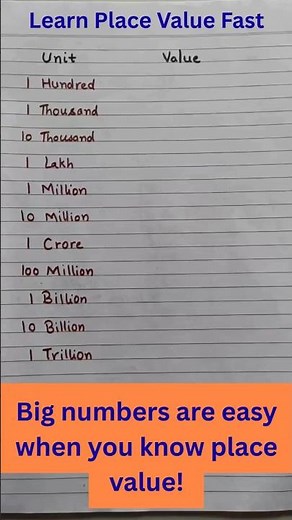 Learn Place Value Fast
Unit Value
1 Hundred
1 Thousand
10 Thousand
1 Lakh
1 Million
10 Million
1 Crore
100 Million
1 Billion
10 Billion
1 Trillion
Big numbers are easy
when you know place
value!